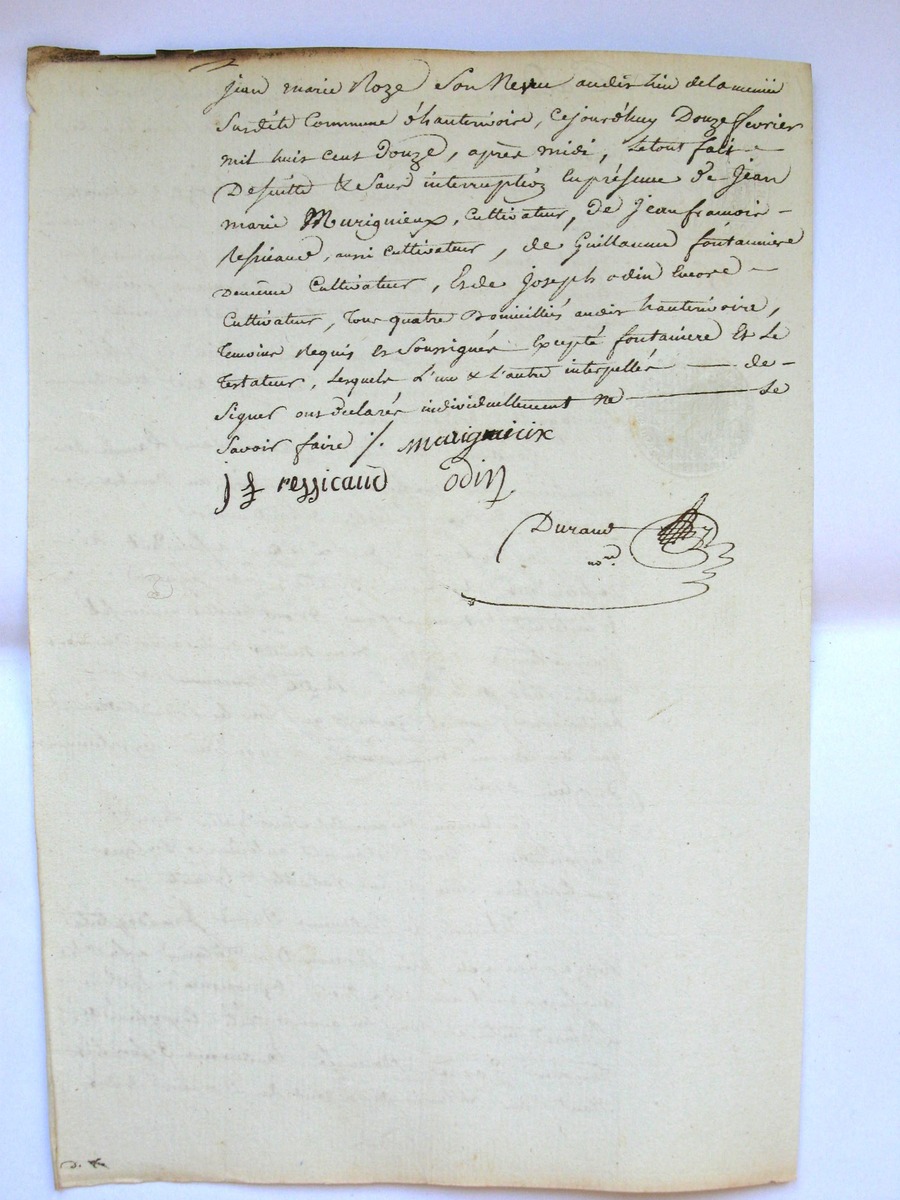 jean marie Roze son Neveu audit lieu de la
Susdite Commune d'hauterivoire, Cejourd'huy Douze fevrier
mil huit cent Douze, après midi, Le tout fait
De suitte & sans interruption En présence de Jean
marie Murignieux, Cultivateur, de jean francois
Ressicaud, aussi cultivateur, de Guillaume fontanniere
Demême Cultivateur, Et de joseph odin Encore
Cultivateur, Tous quatre Domiciliés audit hauterivoire,
Temoins Requis et Soussignés Excepté fontaniere Et Le
Testateur, Lesquels L'un & L'autre interpellés de
Signer ont declarés individuellement ne Le
Savoir faire /. murignieux
j f ressicaud odin
Durand
no.re